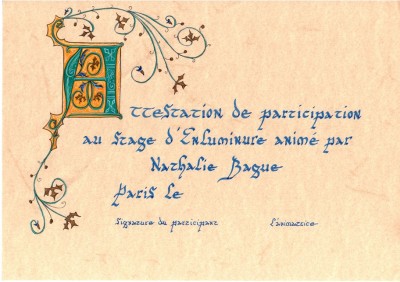 Attestation de participation
au stage d'Enluminure animé par
Nathalie Bague
Paris le
Signature du participant l'animatrice